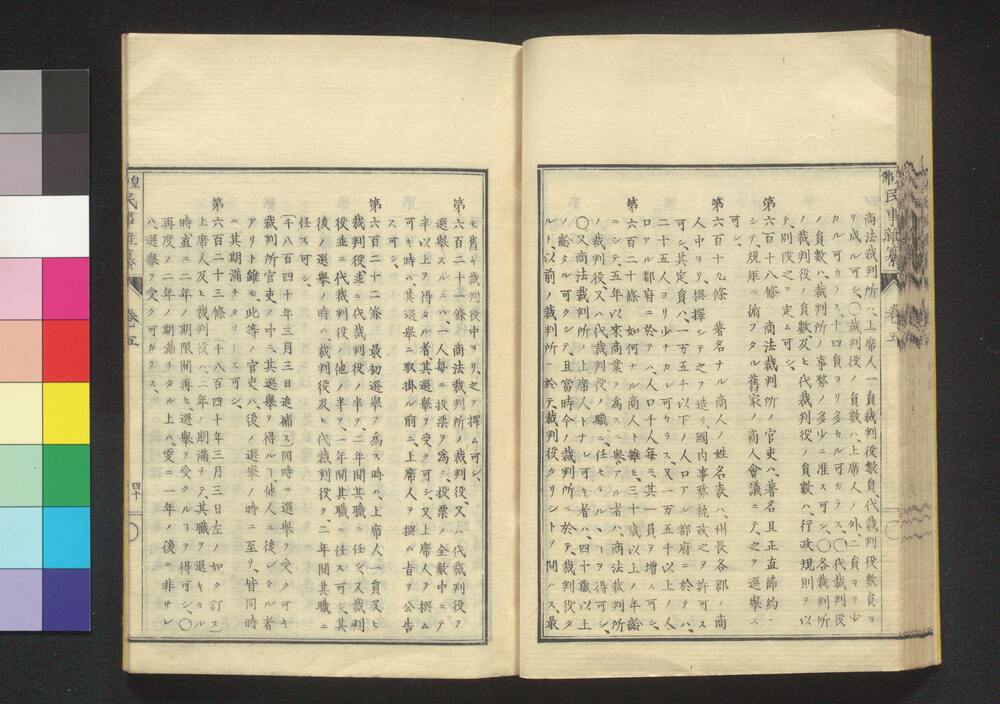 商法裁判所ハ、上席人一員裁判役數員、代裁判役數員ヨ
リ成ル可シ、〇裁判役ノ員數ハ、上席人ノ外、二員ヨリ少
カル可カラス、十四員ヨリ多カル可カラス、〇代裁判役
ノ員數ハ、裁判所ノ事務ノ多少ニ准ス可シ、〇各裁判所
ノ裁判役ノ員數及ヒ代裁判役ノ員數ハ、行政規則ヲ以
テ、別段之ヲ定ム可シ、
第六百十八條 商法裁判所ノ官吏ハ、著名且正直節約ニ
シテ、規矩ニ循フタル舊家ノ商人會議ニテ、之ヲ選擧ス
可シ、
第六百十九條 著名ナル商人ノ姓名表ハ、州長各郡ノ商
人中ヨリ、撰擇シテ之ヲ造リ、國内事務執政之ヲ許可ス
可シ、其定員ハ、一万五千以下ノ人口アル都府ニ於テハ、
二十五人ヨリ少ナカル可カラス、又一万五千以上ノ人
口アル都府ニ於テハ、人口千人每ニ、其一員ヲ增ス可シ、
第六百二十條 如何ナル商人ト雖モ、三十歲以上ノ年齡
ニシテ、五年以來商業ヲ爲ス譽アル者ハ、商法裁判所
ノ裁判役、又ハ代裁判役ノ職ニ、任セラルヽヿヲ得可シ、
〇又商法裁判所ノ上席人トナル可キ者ハ、四十歲以上
ノ齡タル可クシテ、且當時今ノ裁判所ニ於テ、裁判役タ
ルト、以前ノ裁判所ニ於テ、裁判役タリシトヲ問ハス、最
モ舊キ裁判役中ヨリ、之ヲ擇ム可シ、
第六百二十一條 商法裁判所ノ裁判役、又ハ代裁判役ヲ
選擧スルニハ、一人每ニ投票ヲ爲シ、投票ノ全數中ニテ
半以上ヲ得タル者、其選擧ヲ受ク可シ、又上席人ヲ撰ム
可キ時ハ、其選擧ニ取掛ル前ニ、上席人ヲ撰ム旨ヲ公告
ス可シ、
第六百二十二條 最初選擧ヲ爲ス時ハ、上席人一員及ヒ
裁判役並ニ代裁判役ノ半ヲ、二年間其職ニ任シ、又裁判
役並ニ代裁判役ノ他ノ半ヲ、一年間其職ニ任ス可シ、其
後ノ選擧ノ時ハ、裁判役及ヒ代裁判役ヲ、二年間其職ニ
任ス可シ、
(千八百四十年三月三日追補ス)同時ニ選擧ヲ受ク可キ
裁判所官吏ノ中ニ、其選擧ヲ得ルヿ、他人ニ後レタル者
アリト雖モ、此等ノ官吏ハ、後ノ選擧ノ時ニ至リ、皆同時
ニ其期滿チタリトス可シ、
第六百二十三條 (千八百四十年三月三日左ノ如ク訂ス)
上席人及ヒ裁判役ハ、二年ノ期滿チテ、其職ヲ退キタル
時、直ニ二年ノ期限間再ヒ選擧ヲ受クルヿヲ得可シ、〇
再度ノ二年ノ期滿チタル上ハ、爰ニ一年ノ後ニ非サレ
ハ、選擧ヲ受ク可カラス、
民事
卷五
四十